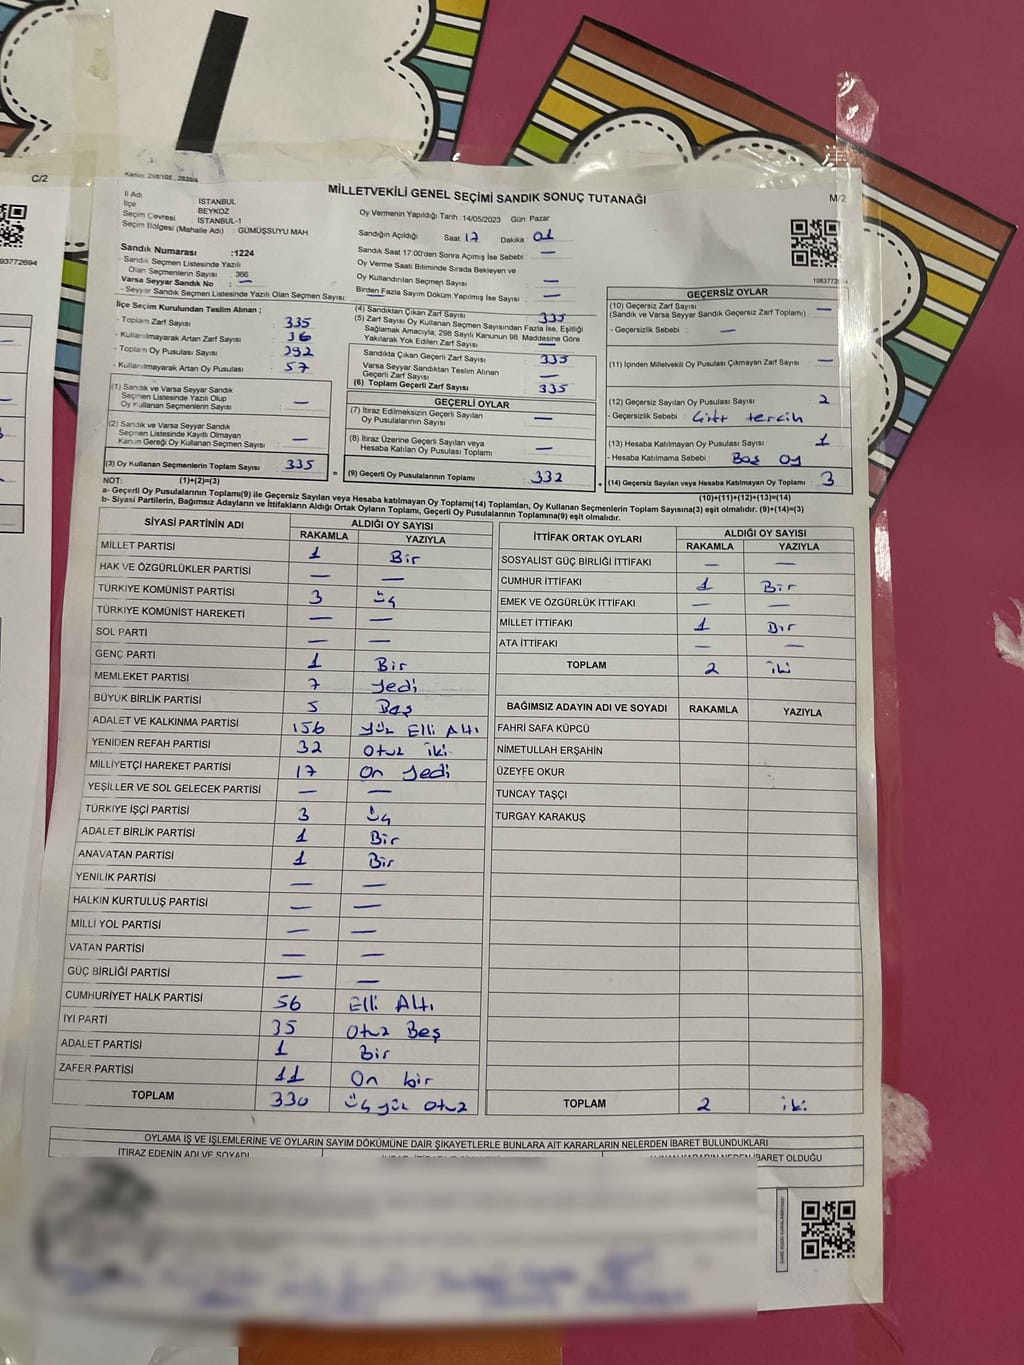 C/2
93772694
Kanun, 298/105, 2839/4
MİLLETVEKİLİ GENEL SEÇİMİ SANDIK SONUÇ TUTANAĞI
M/2
İl Adı İSTANBUL
İlçe BEYKOZ
Seçim Çevresi İSTANBUL-1
Seçim Bölgesi (Mahalle Adı) : GÜMÜŞSUYU MAH
Sandık Numarası :1224
- Sandık Seçmen Listesinde Yazılı
Olan Seçmenlerin Sayısı : 366
Varsa Seyyar Sandık No : —
- Seyyar Sandık Seçmen Listesinde Yazılı Olan Seçmen Sayısı: —
Oy Vermenin Yapıldığı Tarih 14/05/2023 Gün: Pazar
Sandığın Açıldığı Saat 17 Dakika : 01
Sandık Saat 17:00'den Sonra Açımış İse Sebebi : —
Oy Verme Saati Bitiminde Sırada Bekleyen ve
Oy Kullandırılan Seçmen Sayısı —
Birden Fazla Sayım Döküm Yapılmış İse Sayısı : —
İlçe Seçim Kurulundan Teslim Alınan ;
- Toplam Zarf Sayısı 335
- Kullanılmayarak Artan Zarf Sayısı 36
- Toplam Oy Pusulası Sayısı 392
- Kullanılmayarak Artan Oy Pusulası 57
(1) Sandık ve Varsa Seyyar Sandık
Seçmen Listesinde Yazılı Olup
Oy Kullanan Seçmenlerin Sayısı —
(2) Sandık ve Varsa Seyyar Sandık
Seçmen Listesinde Kayıtlı Olmayan
Kanun Gereği Oy Kullanan Seçmen Sayısı —
(3) Oy Kullanan Seçmenlerin Toplam Sayısı : 335
(1)+(2)=(3)
(4) Sandıktan Çıkan Zarf Sayısı : 335
(5) Zarf Sayısı Oy Kullanan Seçmen Sayısından Fazla İse, Eşitliği
Sağlamak Amacıyla, 298 Sayılı Kanunun 98. Maddesine Göre
Yakılarak Yok Edilen Zarf Sayısı —
Sandıkta Çıkan Geçerli Zarf Sayısı : 335
Varsa Seyyar Sandıktan Teslim Alınan
Geçerli Zarf Sayısı —
(6) Toplam Geçerli Zarf Sayısı : 335
GEÇERLİ OYLAR
(7) İtiraz Edilmeksizin Geçerli Sayılan
Oy Pusulalarının Sayısı —
(8) İtiraz Üzerine Geçerli Sayılan veya
Hesaba Katılan Oy Pusulası Toplamı : —
= (9) Geçerli Oy Pusulalarının Toplamı : 332
1083772694
GEÇERSİZ OYLAR
(10) Geçersiz Zarf Sayısı
(Sandık ve Varsa Seyyar Sandık Geçersiz Zarf Toplamı) : —
- Geçersizlik Sebebi : —
(11) İçinden Milletvekili Oy Pusulası Çıkmayan Zarf Sayısı : —
(12) Geçersiz Sayılan Oy Pusulası Sayısı 2
- Geçersizlik Sebebi : Çift tercih
(13) Hesaba Katılmayan Oy Pusulası Sayısı 1
- Hesaba Katılmama Sebebi : Boş Oy
(14) Geçersiz Sayılan veya Hesaba Katılmayan Oy Toplamı : 3
(10)+(11)+(12)+(13)=(14)
NOT:
a- Geçerli Oy Pusulalarının Toplamı(9) ile Geçersiz Sayılan veya Hesaba katılmayan Oy Toplamı(14) Toplamları, Oy Kullanan Seçmenlerin Toplam Sayısına(3) eşit olmalıdır. (9)+(14)=(3)
b- Siyasi Partilerin, Bağımsız Adayların ve İttifakların Aldığı Ortak Oyların Toplamı, Geçerli Oy Pusulalarının Toplamına(9) eşit olmalıdır.
SİYASİ PARTİNİN ADI ALDIĞI OY SAYISI
RAKAMLA YAZIYLA
MİLLET PARTİSİ 1 Bir
HAK VE ÖZGÜRLÜKLER PARTİSİ — —
TÜRKİYE KOMÜNİST PARTİSİ 3 Üç
TÜRKİYE KOMÜNİST HAREKETİ — —
SOL PARTİ — —
GENÇ PARTİ 1 Bir
MEMLEKET PARTİSİ 7 Yedi
BÜYÜK BİRLİK PARTİSİ 5 Beş
ADALET VE KALKINMA PARTİSİ 156 Yüz Elli Altı
YENİDEN REFAH PARTİSİ 32 Otuz iki
MİLLİYETÇİ HAREKET PARTİSİ 17 On Yedi
YEŞİLLER VE SOL GELECEK PARTİSİ — —
TÜRKİYE İŞÇİ PARTİSİ 3 Üç
ADALET BİRLİK PARTİSİ 1 Bir
ANAVATAN PARTİSİ 1 Bir
YENİLİK PARTİSİ — —
HALKIN KURTULUŞ PARTİSİ — —
MİLLİ YOL PARTİSİ — —
VATAN PARTİSİ — —
GÜÇ BİRLİĞİ PARTİSİ — —
CUMHURİYET HALK PARTİSİ 56 Elli Altı
İYİ PARTİ 35 Otuz Beş
ADALET PARTİSİ 1 Bir
ZAFER PARTİSİ 11 On bir
TOPLAM 330 Üç yüz otuz
İTTİFAK ORTAK OYLARI ALDIĞI OY SAYISI
RAKAMLA YAZIYLA
SOSYALİST GÜÇ BİRLİĞİ İTTİFAKI — —
CUMHUR İTTİFAKI 1 Bir
EMEK VE ÖZGÜRLÜK İTTİFAKI — —
MİLLET İTTİFAKI 1 Bir
ATA İTTİFAKI — —
TOPLAM 2 iki
BAĞIMSIZ ADAYIN ADI VE SOYADI RAKAMLA YAZIYLA
FAHRİ SAFA KÜPCÜ
NİMETULLAH ERŞAHİN
ÜZEYFE OKUR
TUNCAY TAŞÇI
TURGAY KARAKUŞ
TOPLAM 2 iki
OYLAMA İŞ VE İŞLEMLERİNE VE OYLARIN SAYIM DÖKÜMÜNE DAİR ŞİKAYETLERLE BUNLARA AİT KARARLARIN NELERDEN İBARET BULUNDUKLARI
İTİRAZ EDENİN ADI VE SOYADI
ALINAN KARARIN NEDEN İBARET OLDUĞU